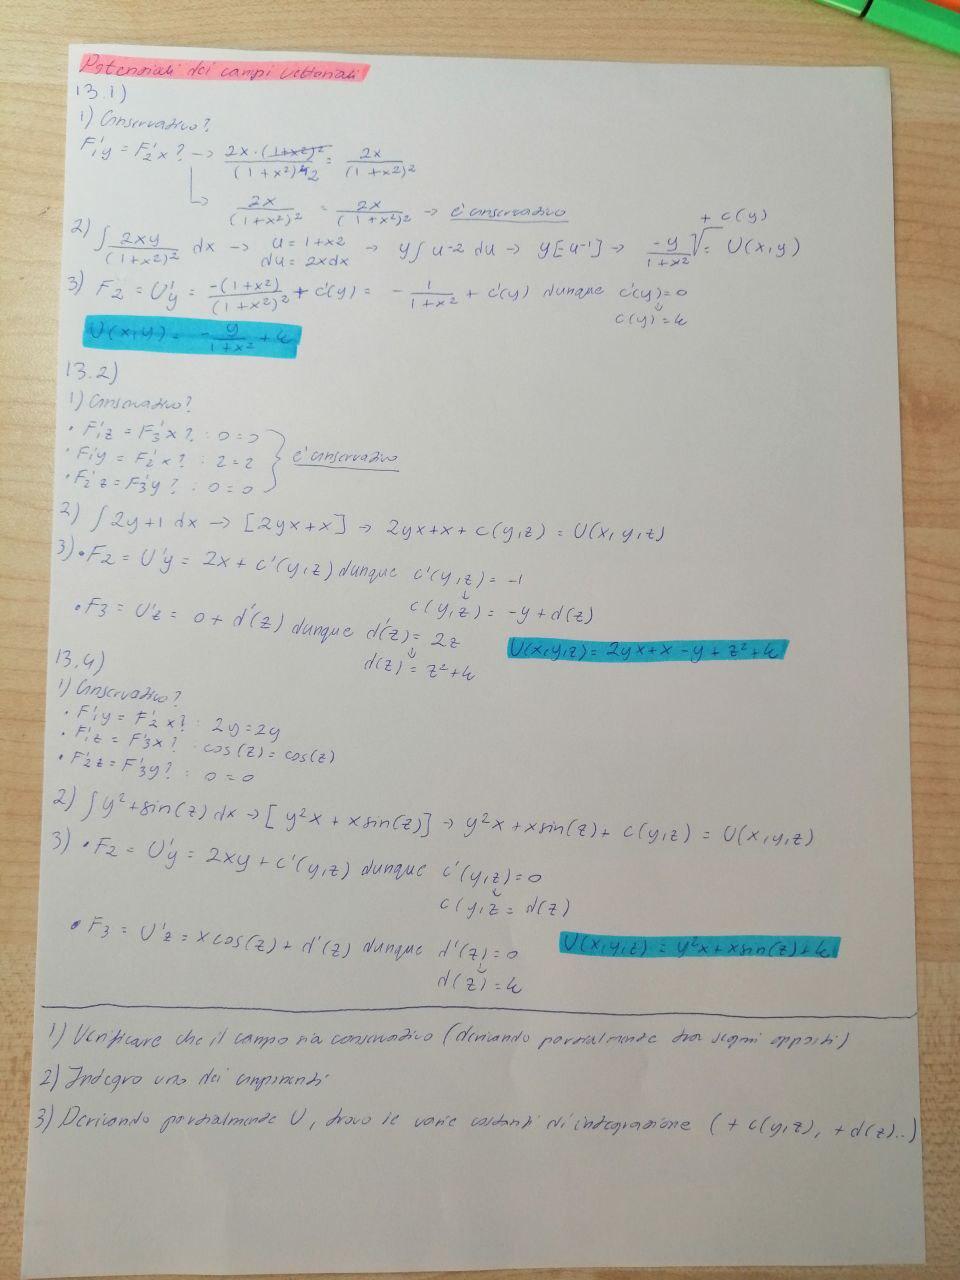 Potenziali dei campi vettoriali
13.1)
1) Conservativo?
F₁'y = F₂'x? → 2x·(1+x²)²/(1+x²)⁴2 = 2x/(1+x²)²
↳ 2x/(1+x²)² = 2x/(1+x²)² → è conservativo
2) ∫ 2xy/(1+x²)² dx → u = 1+x2 du = 2xdx → y∫u-2 du → y[-u-1] → -y/1+x² + c(y) = U(x,y)
3) F2 = U'y = -(1+x²)/(1+x²)² + c'(y) = - 1/1+x² + c'(y) dunque c'(y)=0
c(y)=k
U(x,y) = - y/1+x² + k
13.2)
1) Conservativo?
• F₁'z = F₃'x? : 0=0
• F₁'y = F₂'x? : 2=2 } è conservativo
• F₂'z = F₃'y? : 0=0
2) ∫2y+1 dx → [2yx+x] → 2yx+x+c(y,z) = U(x,y,z)
3) • F2 = U'y = 2x + c'(y,z) dunque c'(y,z) = -1
c(y,z) = -y+d(z)
• F3 = U'z = 0 + d'(z) dunque d'(z) = 2z
d(z) = z²+k
U(x,y,z) = 2yx+x-y+z²+k
13.4)
1) Conservativo?
• F₁'y = F₂'x? : 2y=2y
• F₁'z = F₃'x? : cos(z) = cos(z)
• F₂'z = F₃'y? : 0=0
2) ∫y²+sin(z) dx → [y²x + xsin(z)] → y²x+xsin(z)+ c(y,z) = U(x,y,z)
3) • F2 = U'y = 2xy + c'(y,z) dunque c'(y,z)=0
c(y,z = d(z)
• F3 = U'z = xcos(z) + d'(z) dunque d'(z)=0
d(z) = k
U(x,y,z) = y²x+xsin(z)+k
1) Verificare che il campo sia conservativo (derivando parzialmente tra segni opposti)
2) Integro uno dei componenti
3) Derivando parzialmente U, trovo le varie costanti di integrazione (+c(y,z), +d(z)..)